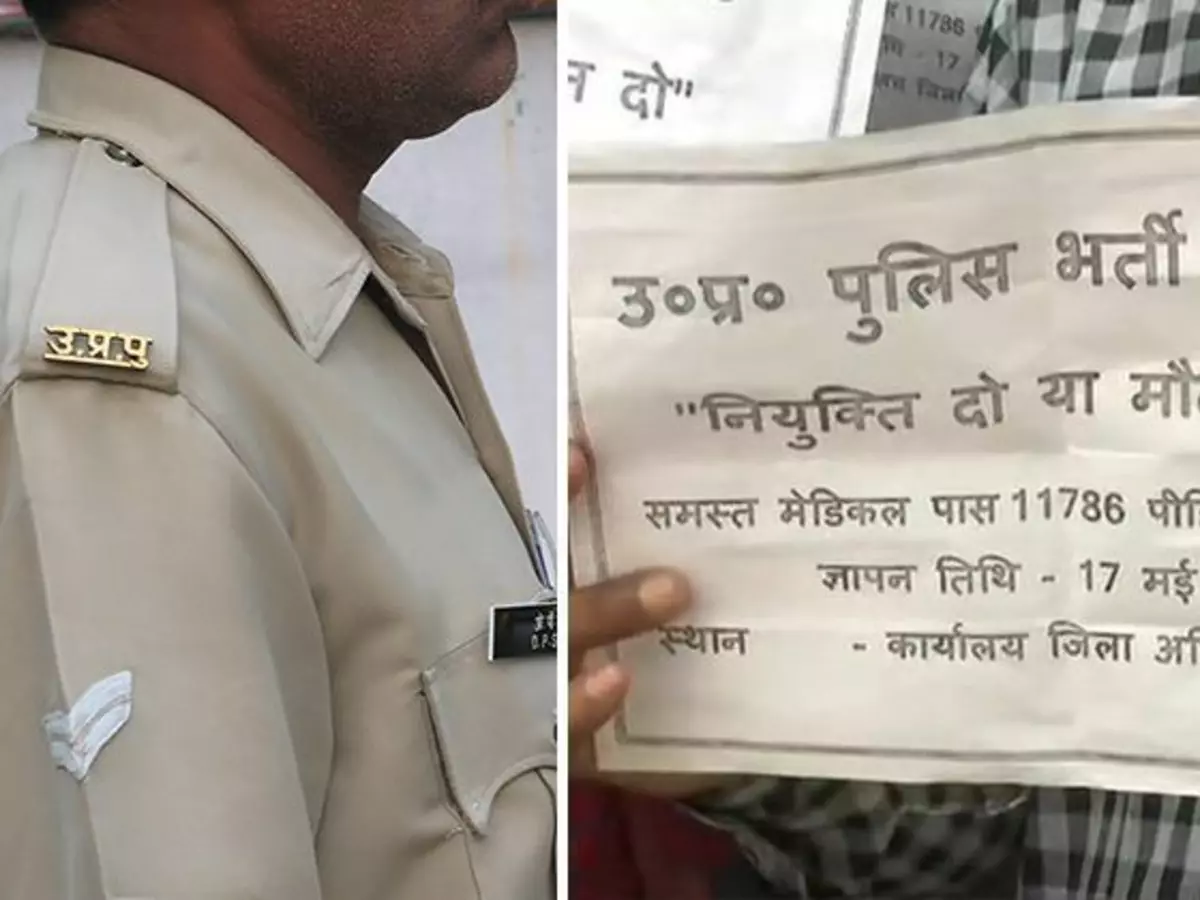 उ.प्र.पु
दो"
11786
17
उ०प्र० पुलिस भर्ती
"नियुक्ति दो या
समस्त मेडिकल पास 11786
ज्ञापन तिथि - 17 मई
स्थान - कार्यालय जिला